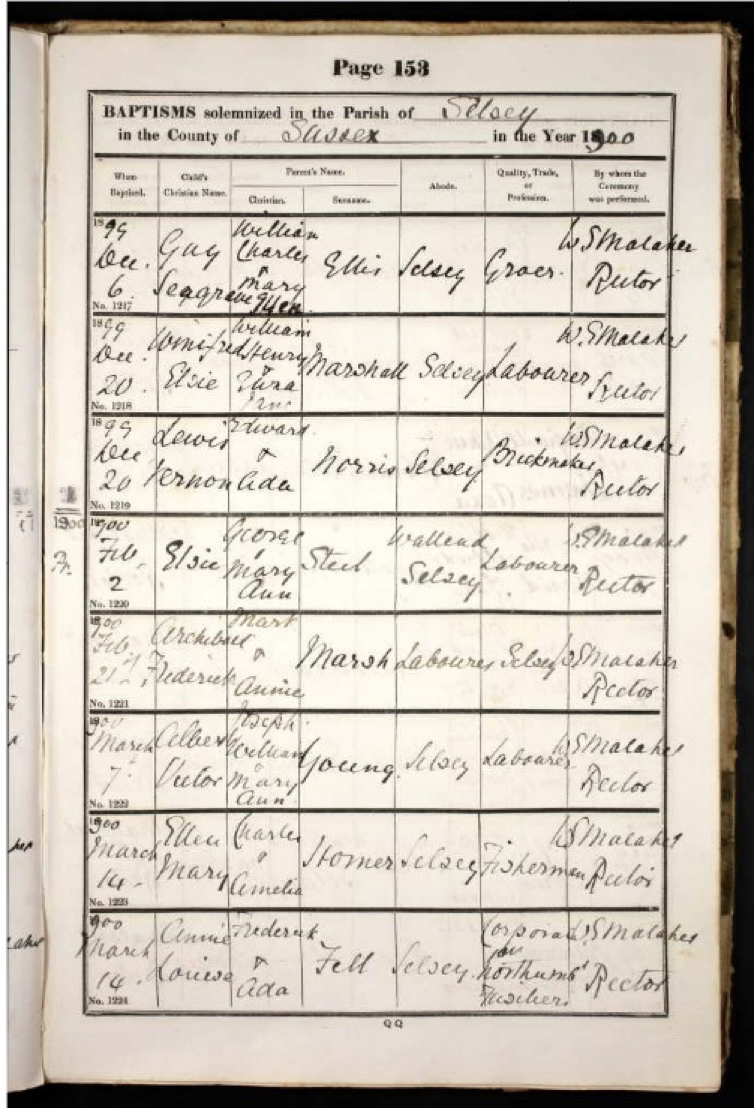 Page 153
BAPTISMS solemnized in the Parish of Selsey
in the County of Sussex in the Year 1900
When Baptised.
Child's Christian Name.
Parent's Name.
Christian.
Surname.
Abode.
Quality, Trade, or Profession.
By whom the Ceremony was performed.
1899 Dec. 6.
No. 1217
Guy Seagrave
William Charles & Mary Ellen
Ellis
Selsey
Grocer
W S Malaher Rector
1899 Dec. 20.
No. 1218
Winifred Elsie
William Henry &
Marshall
Selsey
Labourer
W. S Malaher Rector
1899 Dec 20
No. 1219
Lewis Vernon
Edward & Ada
Norris
Selsey
Brickmaker
W. S Malaher Rector
1900
1900 Feb. 2
No. 1220
Elsie
George & Mary Ann
Steel
Selsey
Labourer
W S Malaher Rector
1900 Feb. 21
No. 1221
Archibald Frederick
Mark & Annie
Marsh
Labourer
Selsey
W S Malaher Rector
1900 March 7.
No. 1222
Albert Victor
Joseph William & Mary Ann
Young
Selsey
Labourer
W S Malaher Rector
1900 March 14.
No. 1223
Ellen Mary
Charles & Amelia
Homer
Selsey
Fisherman
W S Malaher Rector
1900 March 14.
No. 1224
Annie Louisa
Frederick & Ada
Fell
Selsey
Corporal Northumbd Fusiliers
W S Malaher Rector